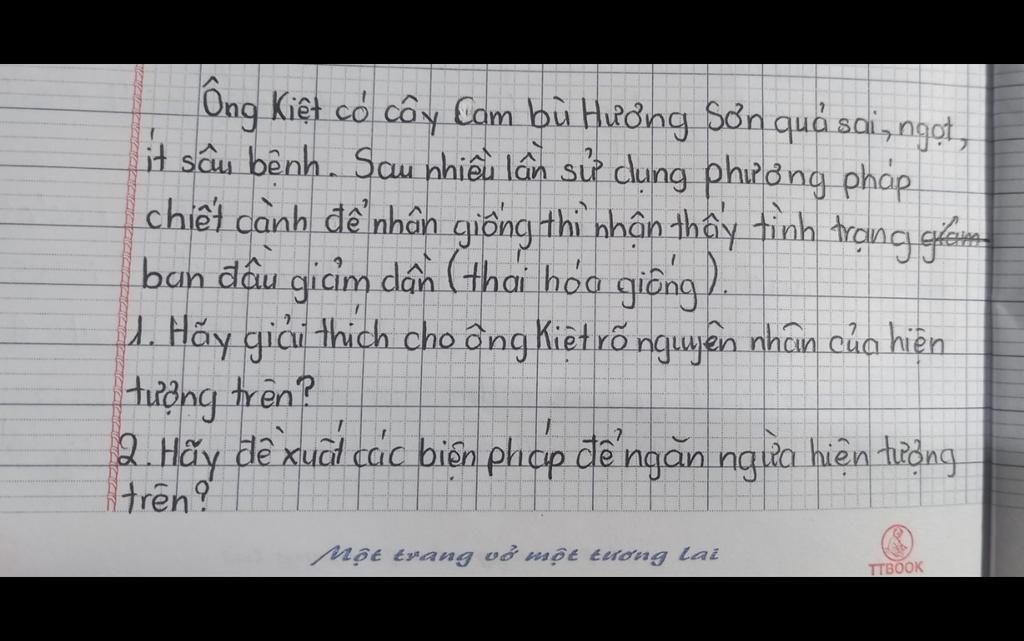 Ông Kiệt có cây Cam bù Hương Sơn quả sai, ngọt,
ít sâu bệnh. Sau nhiều lần sử dụng phương pháp
chiết cành để nhân giống thì nhận thấy tình trạng giảm
ban đầu giảm dần (thái hóa giống).
1. Hãy giải thích cho ông Kiệt rõ nguyên nhân của hiện
tượng trên?
2. Hãy đề xuất các biện pháp để ngăn ngừa hiện tượng
trên?
Một trang vở một tương lai
TTBOOK